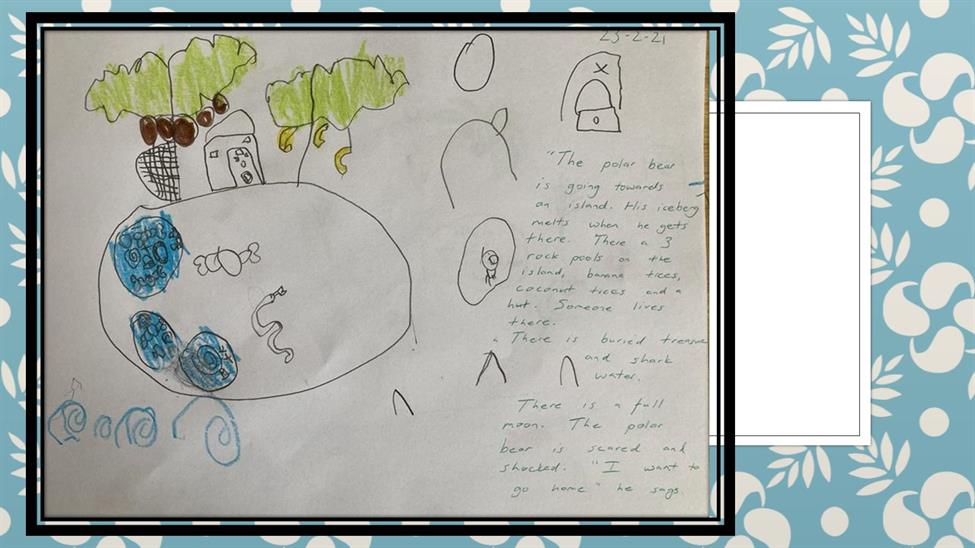 23-2-21
"The polar bear
is going towards
an island. His iceberg
melts when he gets
there. There a 3
rock pools on the
island, banana trees,
coconut trees and a
hut. Someone lives
there.
There is buried treasure
and shark
water.
There is a full
moon. The polar
bear is scared and
shocked. "I want to
go home" he says.